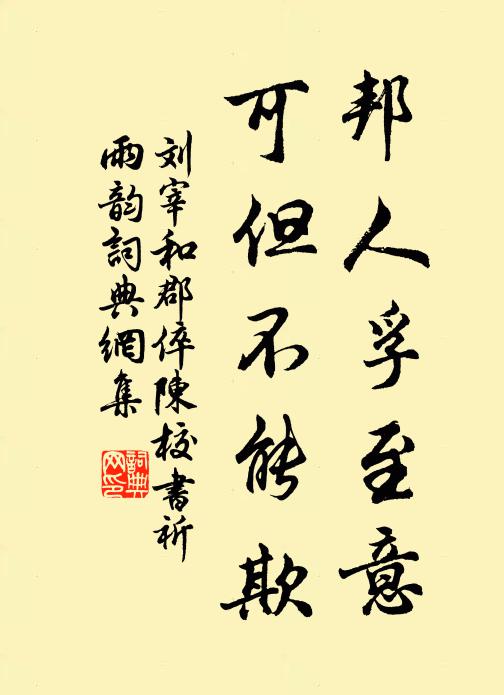 邦人孚至意
可但不能欺
刘宰和郡倅陳校書祈
雨韵詞典網集
詞典
网印